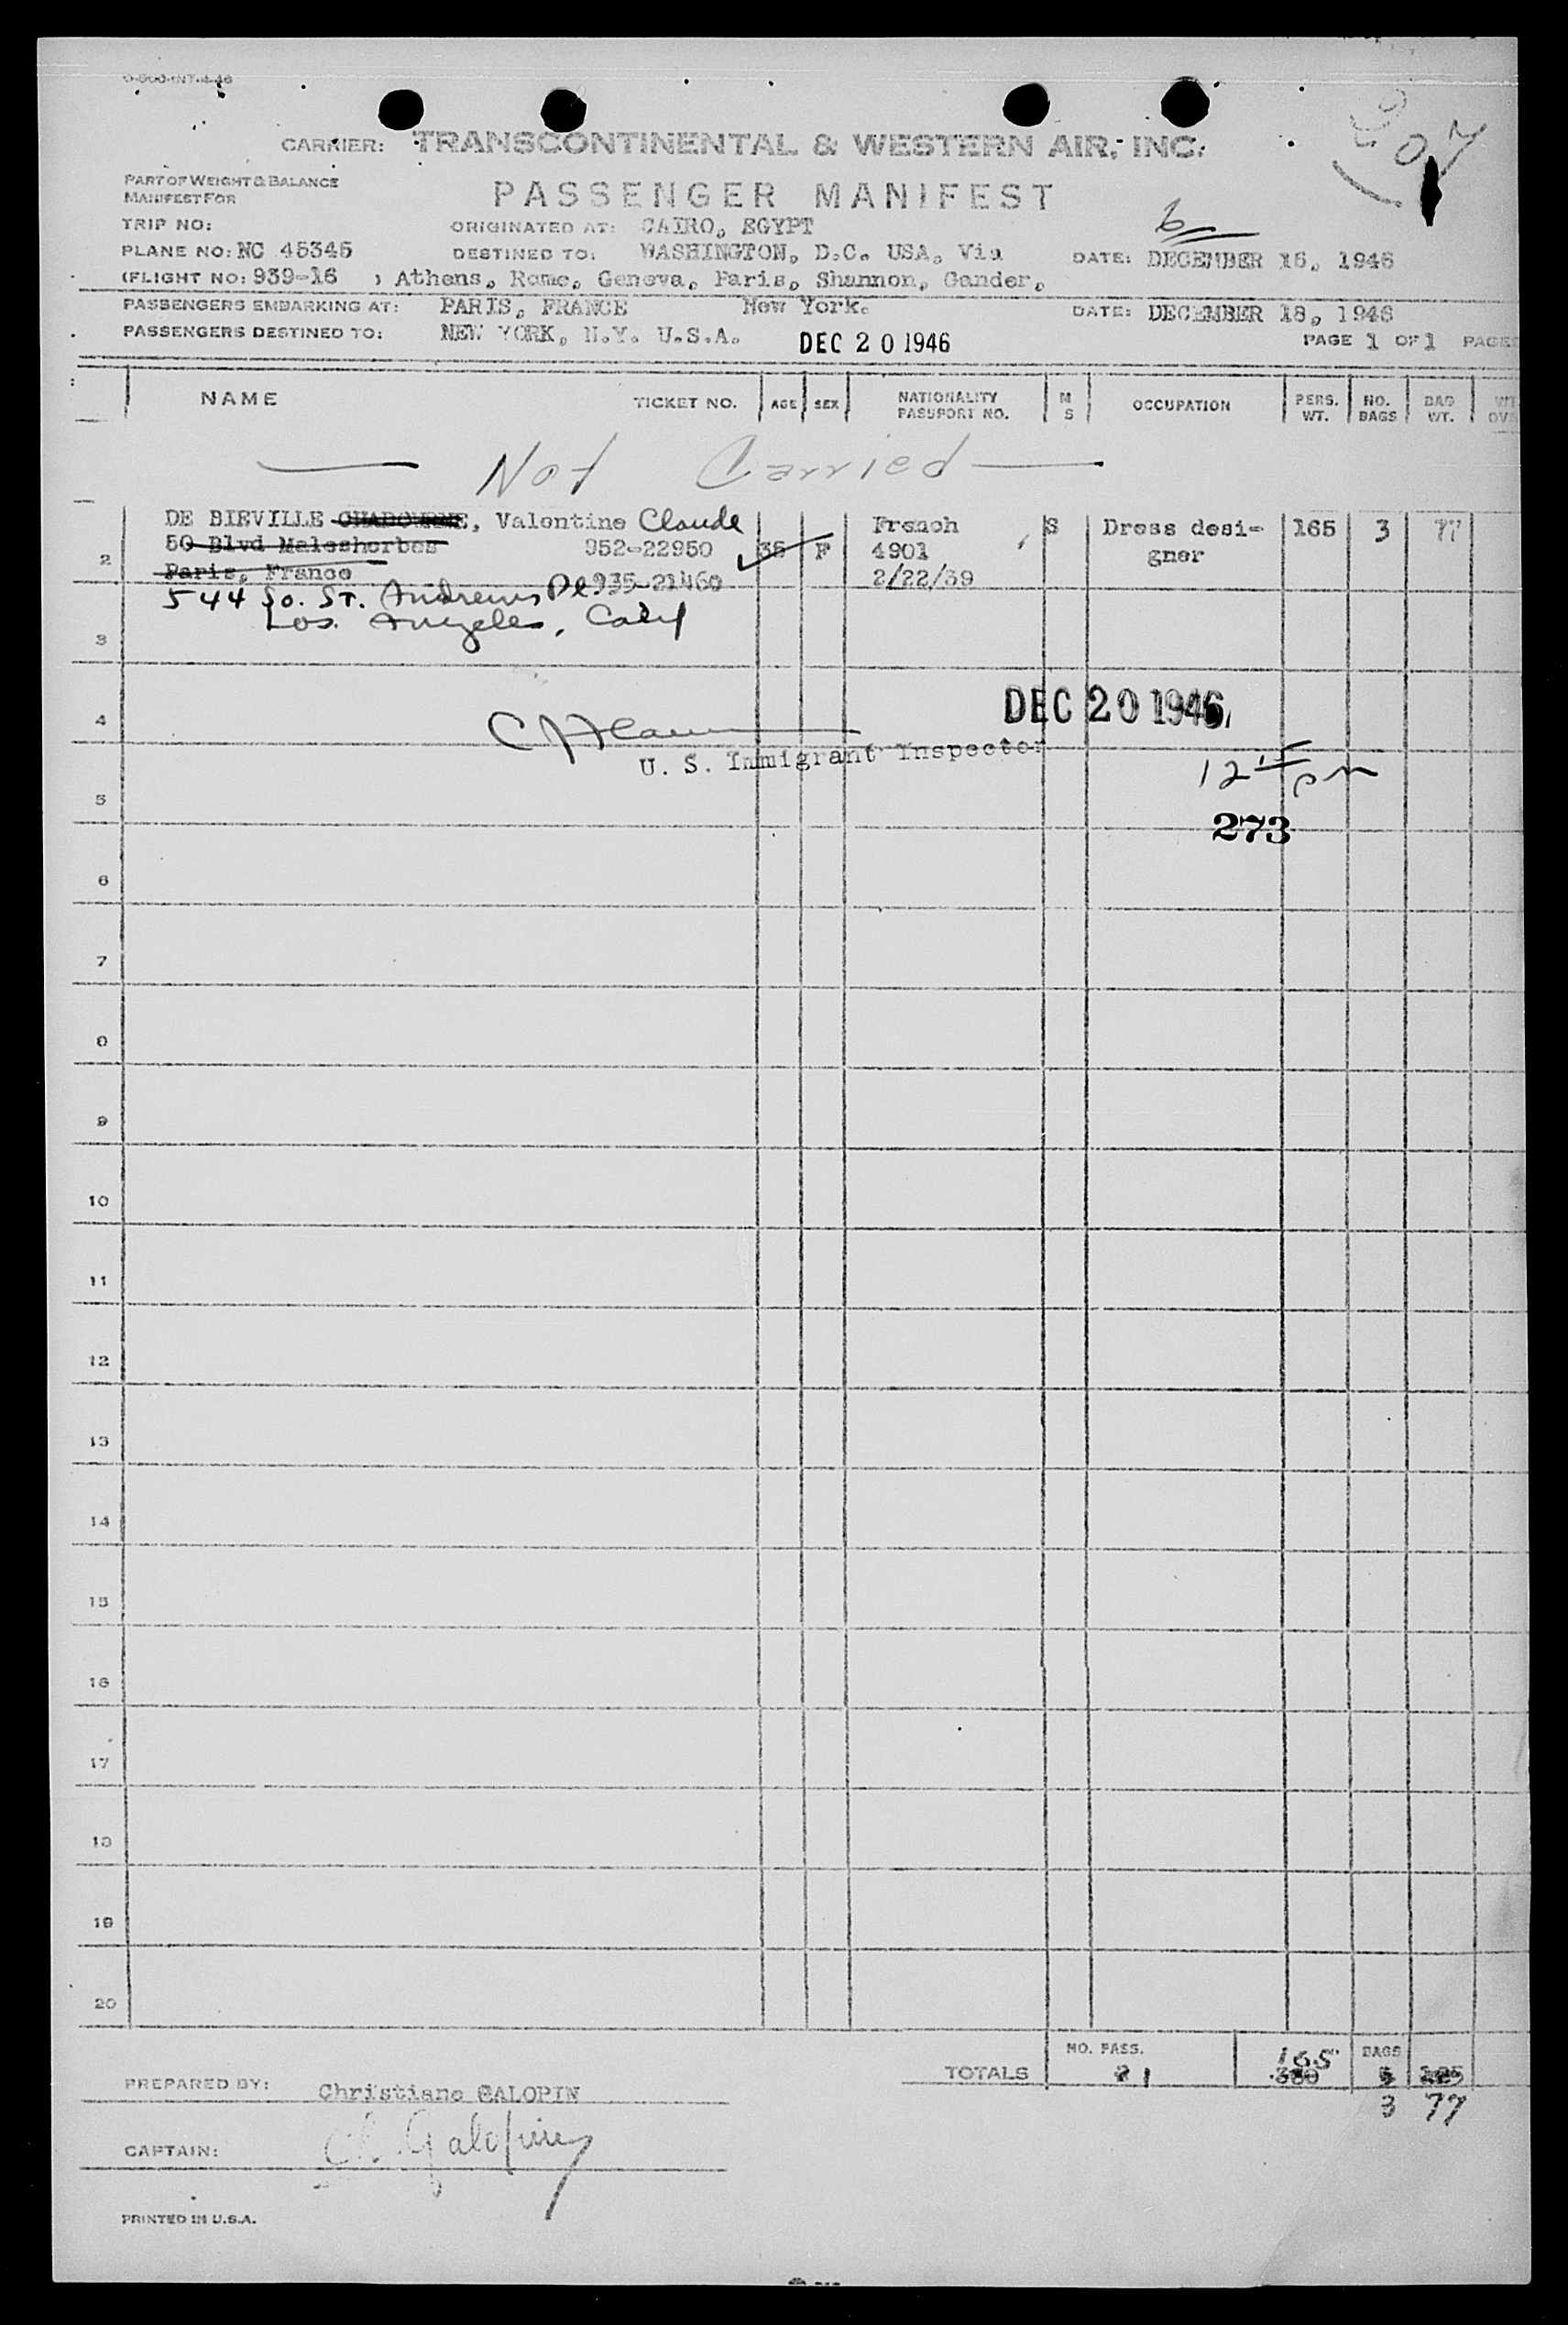 O-500-INT-4-46
CARRIER: TRANSCONTINENTAL & WESTERN AIR, INC.
PART OF WEIGHT & BALANCE
MANIFEST FOR
PASSENGER MANIFEST
TRIP NO: ORIGINATED AT: CAIRO, EGYPT
PLANE NO: NC 45345 DESTINED TO: WASHINGTON, D.C. USA, Via DATE: DECEMBER 16, 1946
(FLIGHT NO: 939-16 ) Athens, Rome, Geneva, Paris, Shannon, Gander,
PASSENGERS EMBARKING AT: PARIS, FRANCE New York. DATE: DECEMBER 18, 1946
PASSENGERS DESTINED TO: NEW YORK, N.Y. U.S.A. DEC 20 1946 PAGE 1 OF 1 PAGES
NAME TICKET NO. AGE SEX NATIONALITY PASSPORT NO. M S OCCUPATION PERS. WT. NO. BAGS BAG WT.
Not Carried
DE BIEVILLE CHABOURNE, Valentine Claude French S Dress desi- 165 3 77
2 50 Blvd Malesherbes 952-22950 35 F 4901 gner
Paris, France 935-21460 2/22/39
544 So. St. Andrews Pl
Los Angeles, Calif
3
4 DEC 20 1946
U. S. Immigrant Inspector
12 15 pm
5
273
6
7
8
9
10
11
12
13
14
15
16
17
18
19
20
TOTALS NO. PASS. 2 1 165 BAGS
380
3 77
PREPARED BY: Christiane GALOPIN
CAPTAIN: Ch. Galopin
PRINTED IN U.S.A.